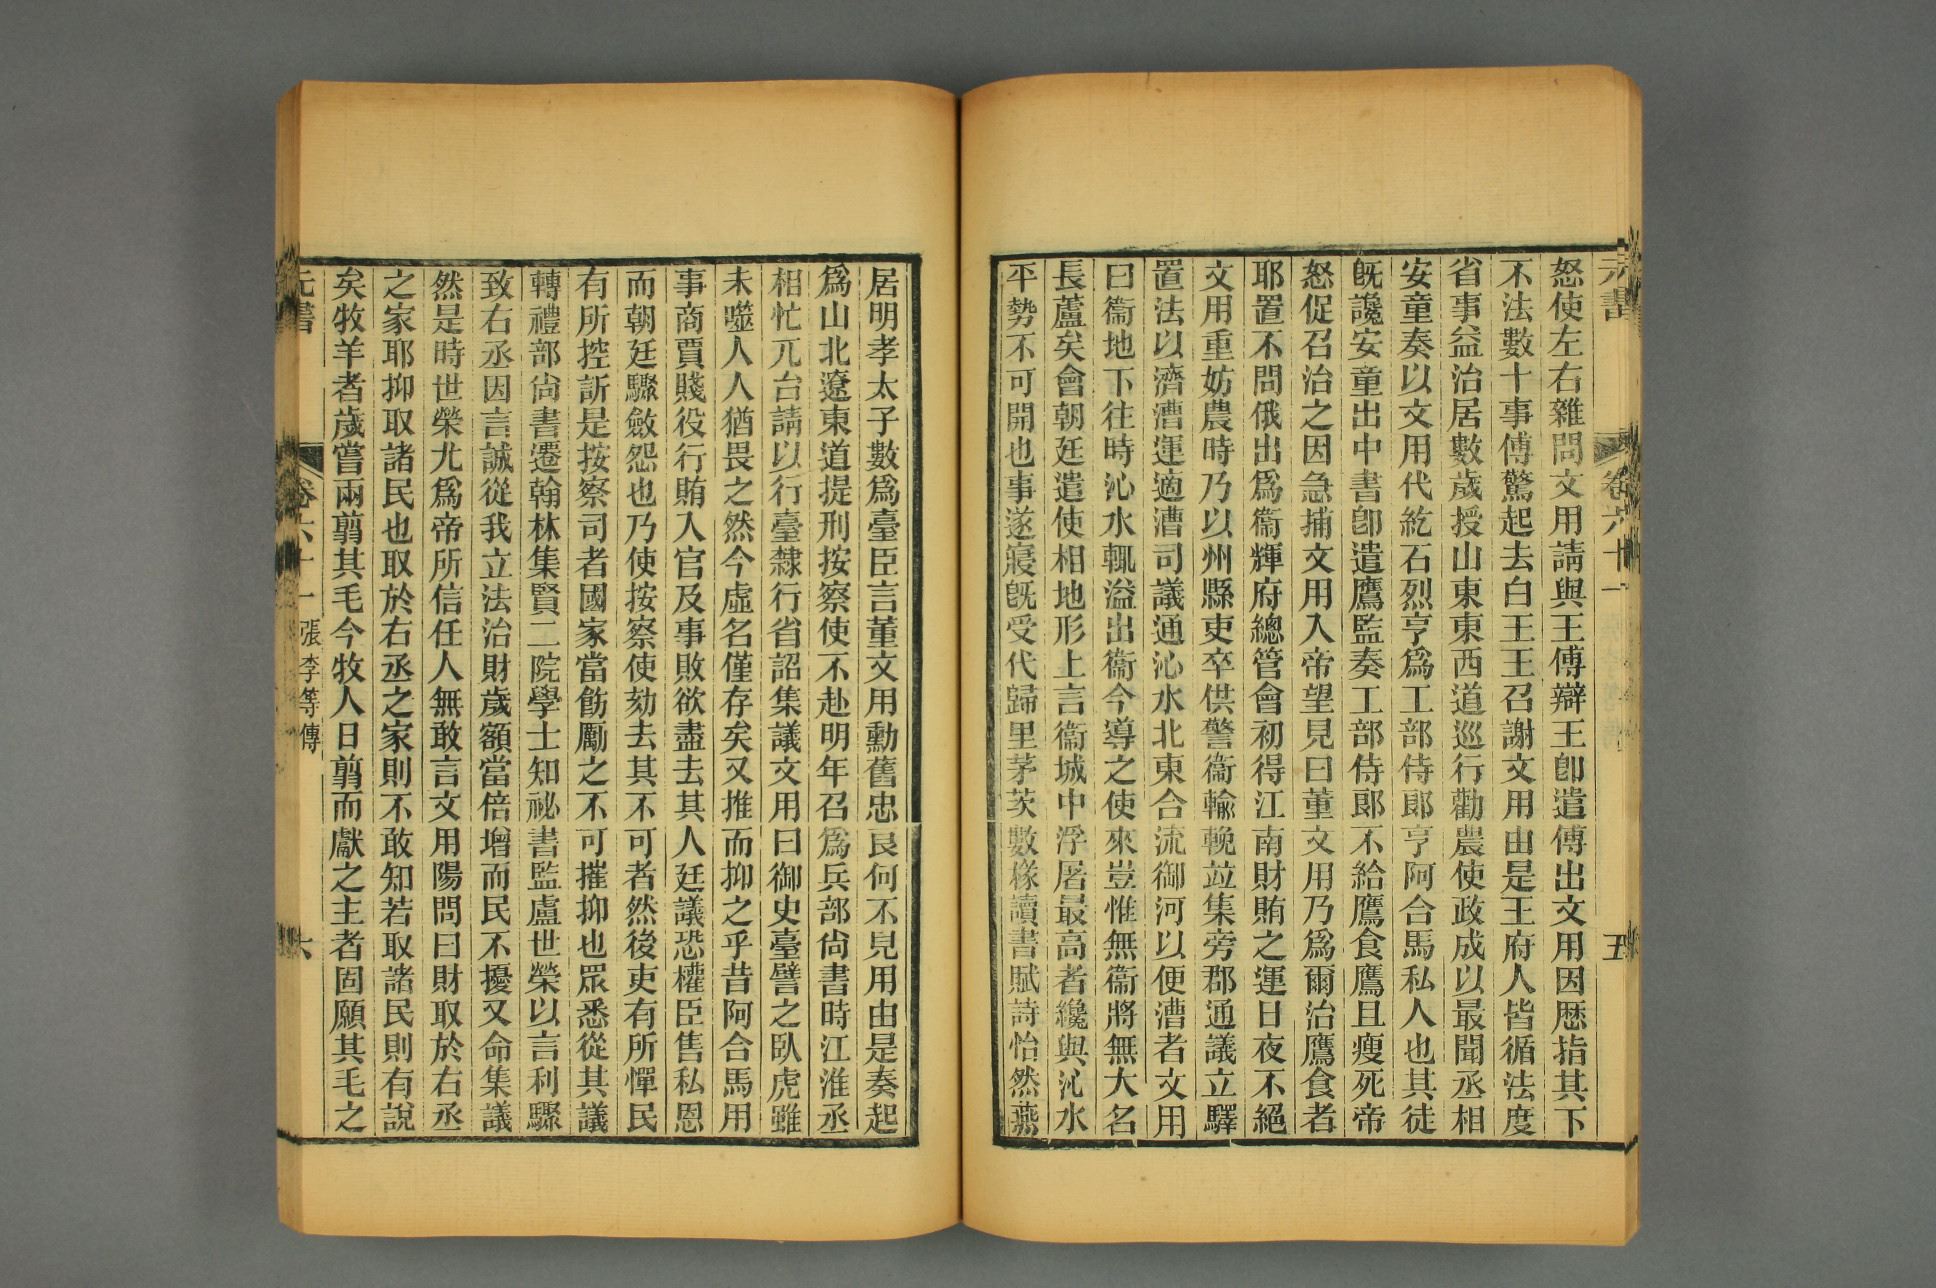 元書
卷六十一
五
怒使左右雜問文用請與王傅辯王卽遣傅出文用因歴指其下
不法數十事傅驚起去白王王召謝文用由是王府人皆循法度
省事益治居數歲授山東東西道巡行勸農使政成以最聞丞相
安童奏以文用代紇石烈亨爲工部侍郎亨阿合馬私人也其徒
旣讒安童出中書卽遣鷹監奏工部侍郎不給鷹食鷹且瘦死帝
怒促召治之因急捕文用入帝望見曰董文用乃爲爾治鷹食者
耶置不問俄出爲衞輝府總管會初得江南財賄之運日夜不絕
文用重妨農時乃以州縣吏卒供警衞輸輓竝集旁郡通議立驛
置法以濟漕運適漕司議通沁水北東合流御河以便漕者文用
曰衞地下往時沁水輒溢出衞今導之使來豈惟無衞將無大名
長蘆矣會朝廷遣使相地形上言衞城中浮屠最高者纔與沁水
平勢不可開也事遂寢旣受代歸里茅茨數椽讀書賦詩怡然燕
居明孝太子數爲臺臣言董文用勳舊忠良何不見用由是奏起
爲山北遼東道提刑按察使不赴明年召爲兵部尙書時江淮丞
相忙兀台請以行臺隸行省詔集議文用曰御史臺譬之臥虎雖
未噬人人猶畏之然今虛名僅存矣又推而抑之乎昔阿合馬用
事商賈賤役行賄入官及事敗欲盡去其人廷議恐權臣售私恩
而朝廷驟斂怨也乃使按察使劾去其不可者然後吏有所憚民
有所控訴是按察司者國家當飭勵之不可摧抑也眾悉從其議
轉禮部尙書遷翰林集賢二院學士知祕書監盧世榮以言利驟
致右丞因言誠從我立法治財歲額當倍增而民不擾又命集議
然是時世榮尤爲帝所信任人無敢言文用陽問曰財取於右丞
之家耶抑取諸民也取於右丞之家則不敢知若取諸民則有說
矣牧羊者歲嘗兩翦其毛今牧人日翦而獻之主者固願其毛之
元書
卷六十一 張李等傳
六